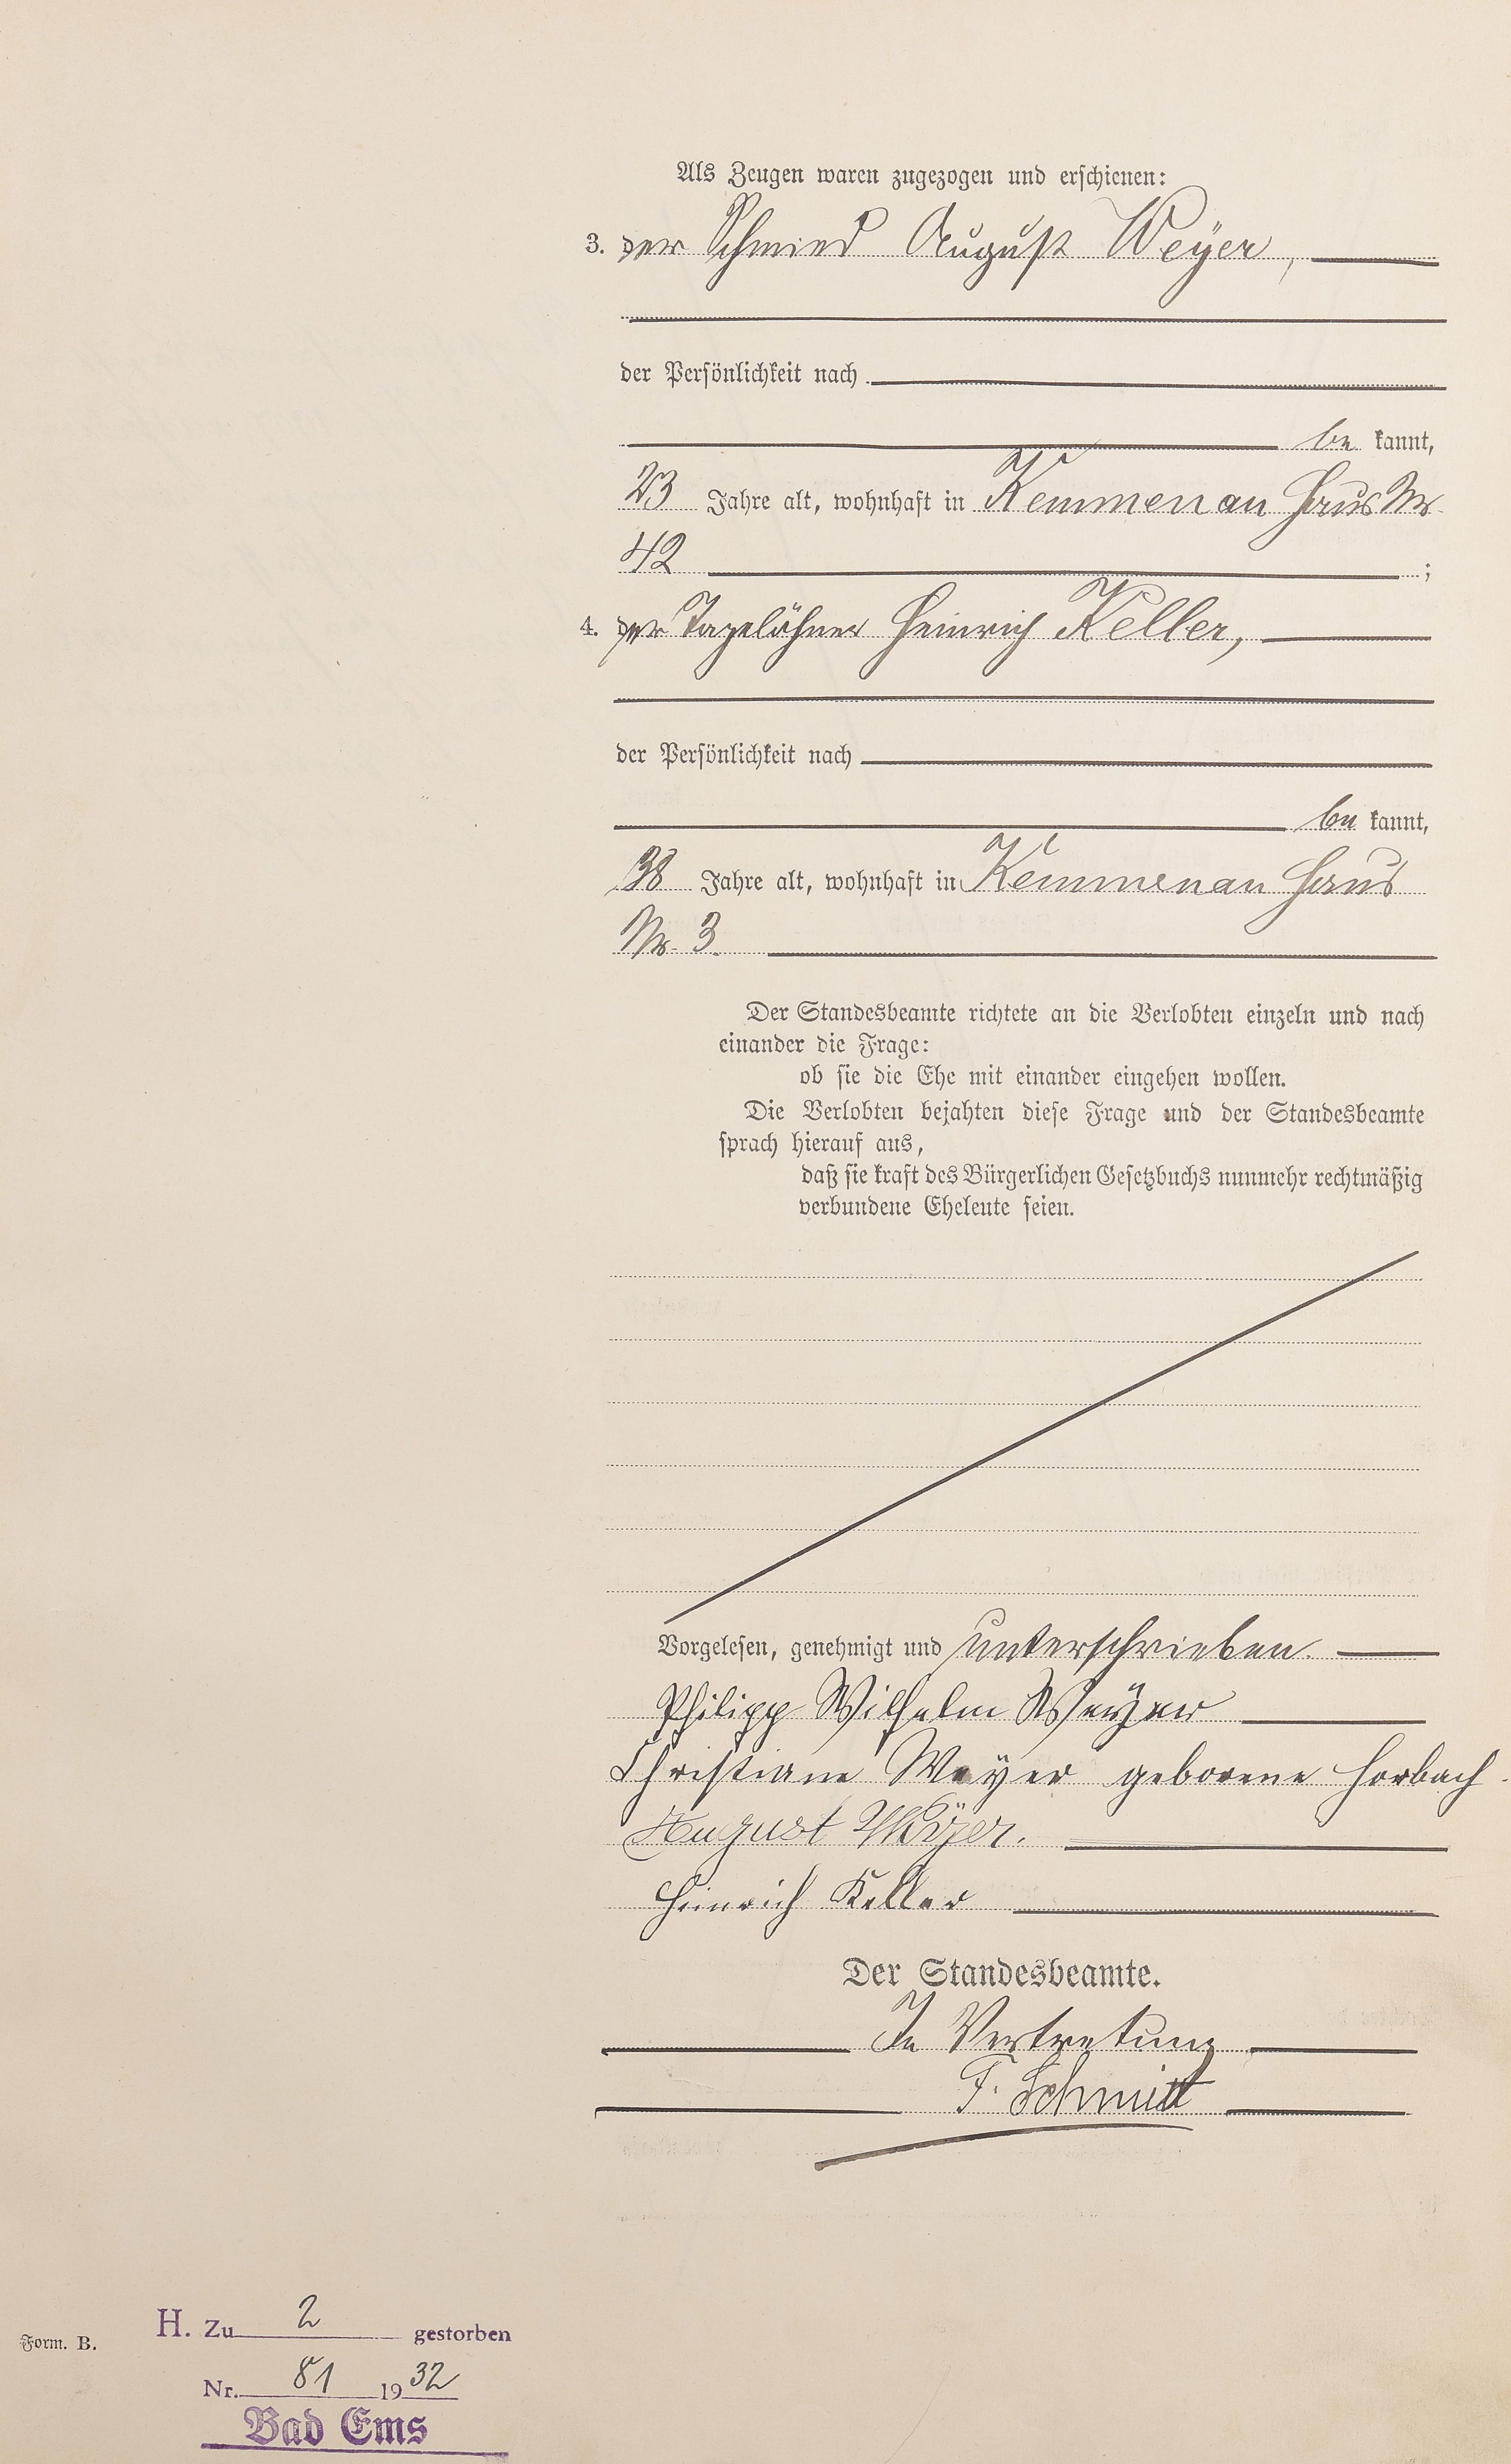 Als Zeugen waren zugezogen und erschienen:
3. der Schmied August Weyer,
der Persönlichkeit nach
be kannt,
23 Jahre alt, wohnhaft in Kemmenau Haus Nr.
42 ;
4. der Tagelöhner Heinrich Keller,
der Persönlichkeit nach
be kannt,
38 Jahre alt, wohnhaft in Kemmenau Haus
Nr. 3
Der Standesbeamte richtete an die Verlobten einzeln und nach
einander die Frage:
ob sie die Ehe mit einander eingehen wollen.
Die Verlobten bejahten diese Frage und der Standesbeamte
sprach hierauf aus,
daß sie kraft des Bürgerlichen Gesetzbuchs nunmehr rechtmäßig
verbundene Eheleute seien.
Vorgelesen, genehmigt und unterschrieben.
Philipp Wilhelm Weyer
Christiane Weyer geborene Horbach.
August Weyer.
Heinrich Keller
Der Standesbeamte.
In Vertretung
F. Schmitt
Form. B.
H. Zu 2 gestorben
Nr. 81 1932
Bad Ems